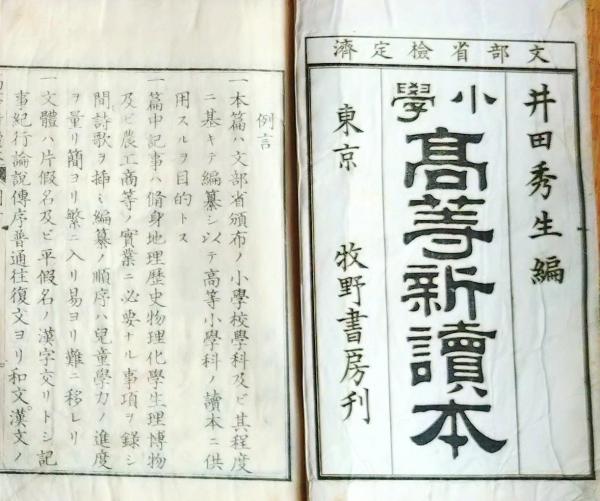 文部省檢定濟
井田秀生編
小學
高等新讀本
東京　牧野書房刊
例言
一本篇ハ文部省頒布ノ小學校學科及ビ其程度
ニ基キテ編纂シ以テ高等小學科ノ讀本ニ供
用スルヲ目的トス
一篇中記事ハ脩身地理歷史物理化學生理博物
及ビ農工商等ノ實業ニ必要ナル事項ヲ録シ
間詩歌ヲ挿ミ編纂ノ順序ハ兒童學力ノ進度
ヲ量リ簡ヨリ繁ニ入リ易ヨリ難ニ移レリ
一文體ハ片假名及ビ平假名ノ漢字交リトシ記
事紀行論説傳序普通往復文ヨリ和文。漢文ノ